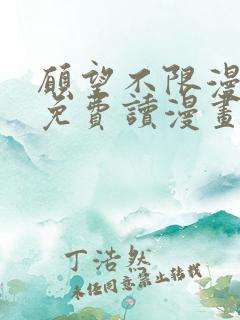 願望不限漫
免費讀漫畫
丁浩然
未经同意禁止转载